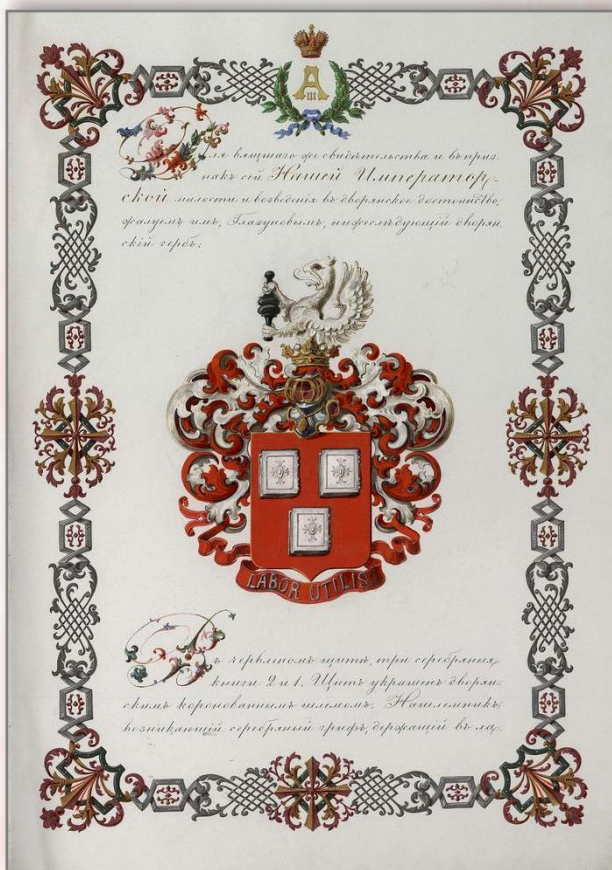 А
III
Для вящшаго же свидѣтельства и въ приз-
накъ сей Нашей Император-
ской милости и возведенія въ дворянское достоинство,
жалуемъ имъ, Глазуновымъ, нижеслѣдующій дворян-
скій гербъ:
LABOR UTILIS
Въ червленомъ щитѣ, три серебряныя
книги 2 и 1. Щитъ украшенъ дворян-
скимъ коронованнымъ шлемомъ. Нашлемникъ:
возникающій серебряный грифъ, держащій въ ла-